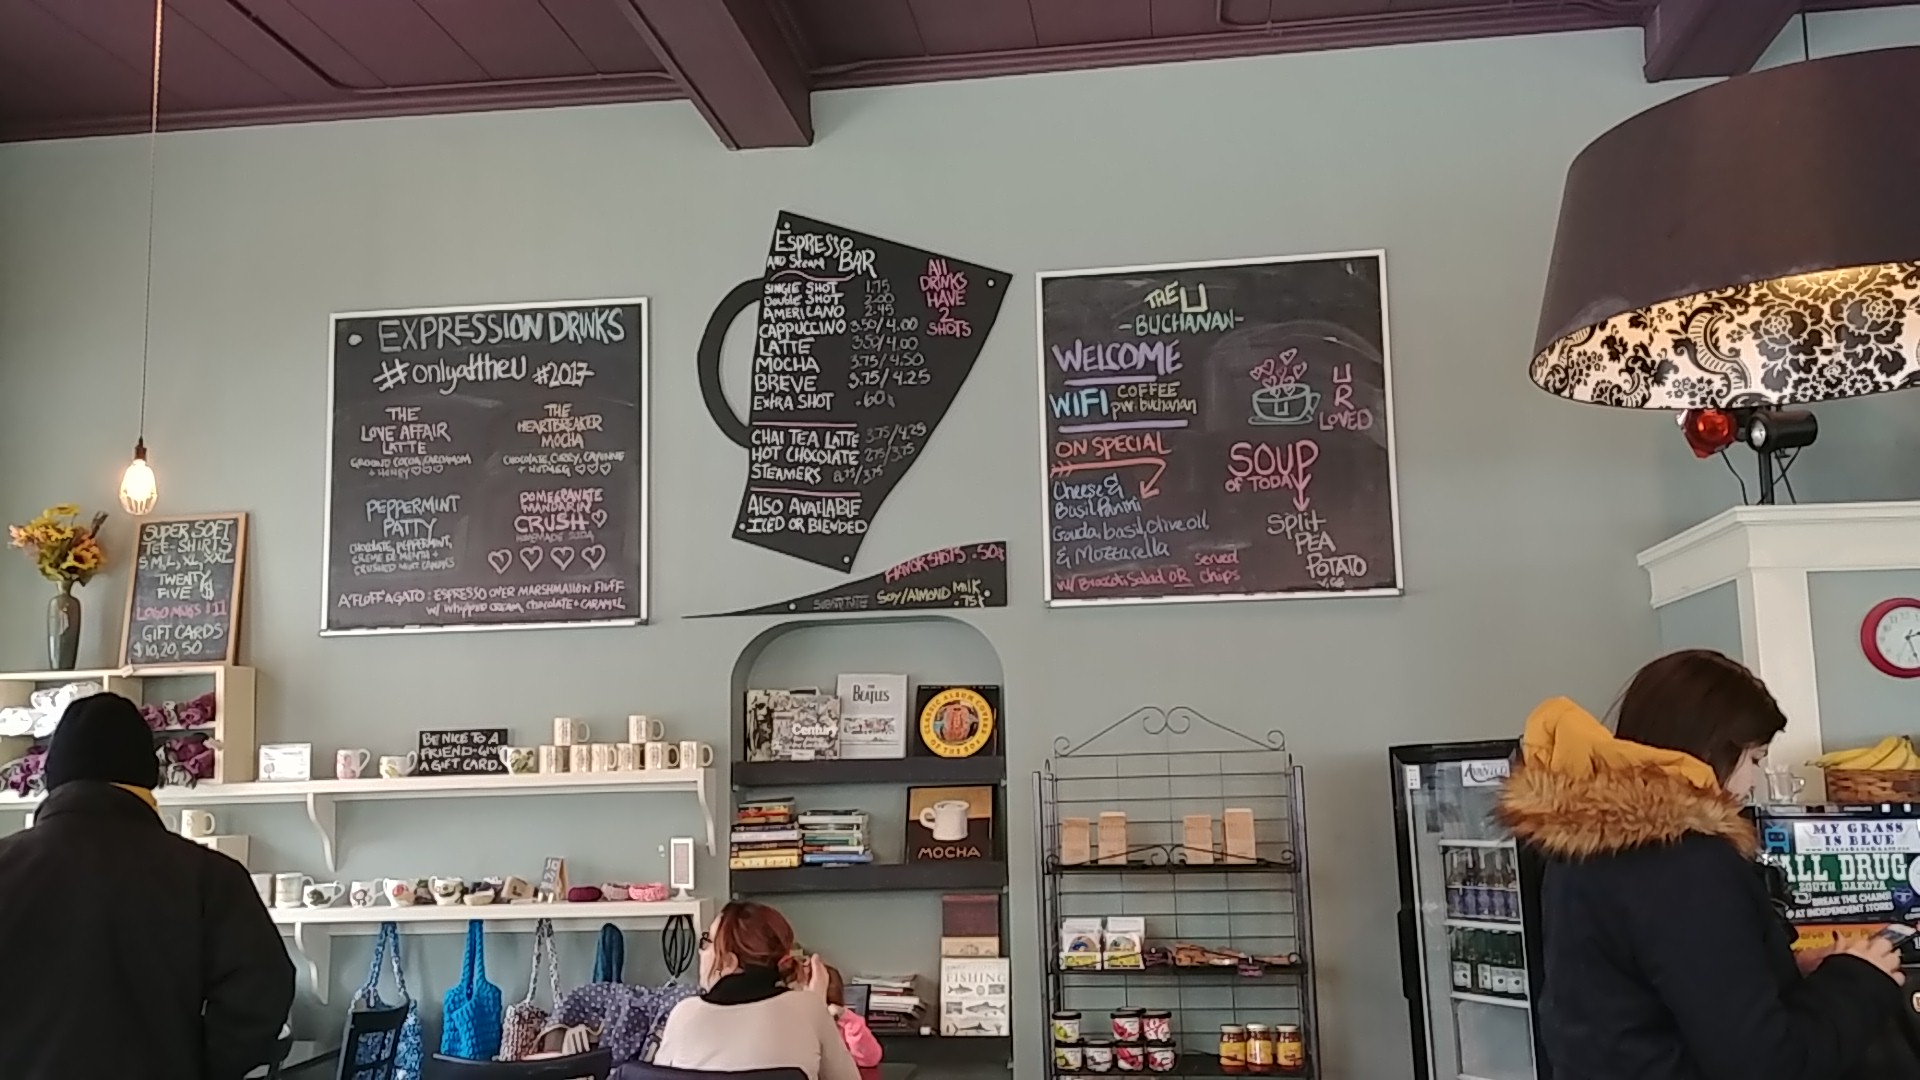 EXPRESSION DRINKS
#onlyattheU #2017
THE
LOVE AFFAIR
LATTE
GROUND COCOA, CARDAMOM
+ HONEY
THE
HEARTBREAKER
MOCHA
CHOCOLATE, CURRY, CAYENNE
+ NUTMEG
PEPPERMINT
PATTY
CHOCOLATE, PEPPERMINT,
CREME DE MENTH +
CRUSHED MINT CANDIES
POMEGRANATE
MANDARIN
CRUSH
HOMEMADE SODA
AFLOFFAGATO: ESPRESSO OVER MARSHMALLOW FLUFF
w/ WHIPPED CREAM, CHOCOLATE + CARAMEL
ESPRESSO
AND Steam BAR
All
DRINKS
HAVE
2
SHOTS
SINGLE SHOT 1.75
Double SHOT 2.00
AMERICANO 2.45
CAPPUCCINO 3.50/4.00
LATTE 3.50/4.00
MOCHA 3.75/4.50
BREVE 3.75/4.25
EXTRA SHOT .60
CHAI TEA LATTE 3.75/4.25
HOT CHOCOLATE 2.75/3.75
STEAMERS
ALSO AVAILABLE
ICED OR BLENDED
FLAVOR SHOTS .50¢
SUBSTITUTE SOY/ALMOND MILK
.75¢
THE U
-BUCHANAN-
WELCOME
WIFI COFFEE
pw: buchanan
U
R
LOVED
ON SPECIAL
Cheese &
Basil Panini
Gouda, basil, olive oil,
& Mozzarella
served
w/ Broccoli Salad OR chips
SOUP
of TODAY
Split
PEA
POTATO
SUPER SOFT
TEE-SHIRTS
S, M, L, XL, XXL
TWENTY
FIVE $
LOGO MUGS $11
GIFT CARDS
$10, 20, 50
BE NICE TO A
FRIEND-GIVE
A GIFT CARD.
Century
THE
BEATLES
CLASSIC ALBUM COVERS
OF THE 60s
MOCHA
FISHING
MY GRASS
IS BLUE
ALL DRUG
SOUTH DAKOTA
BREAK THE CHAIN!
AT INDEPENDENT STORES